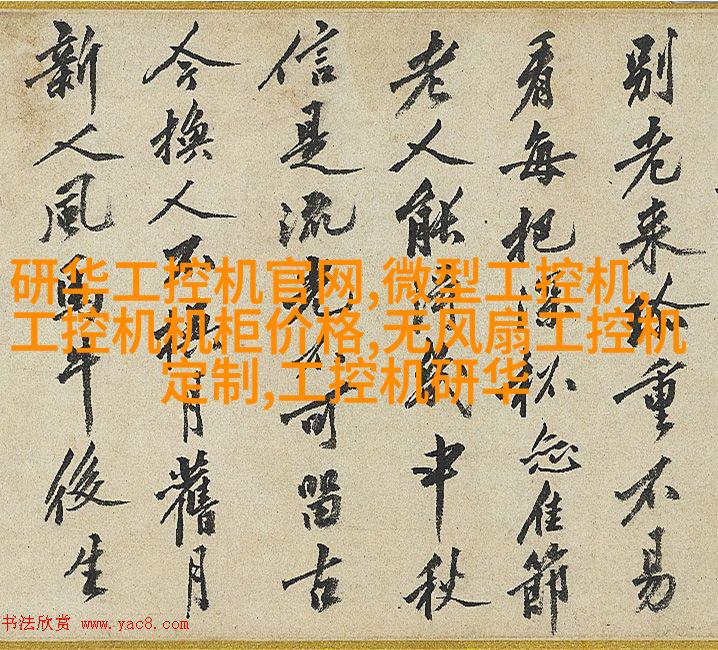 别老来於重不易
看每把深杯佳節
老人能得幾中秋
信是流光不可留古
今換人不換月舊月
新人風馬牛後生
研华工控机官网,微型工控机,
工控机机柜价格,无风扇工控机
定制,工控机研华
书法欣赏 www.yac8.com